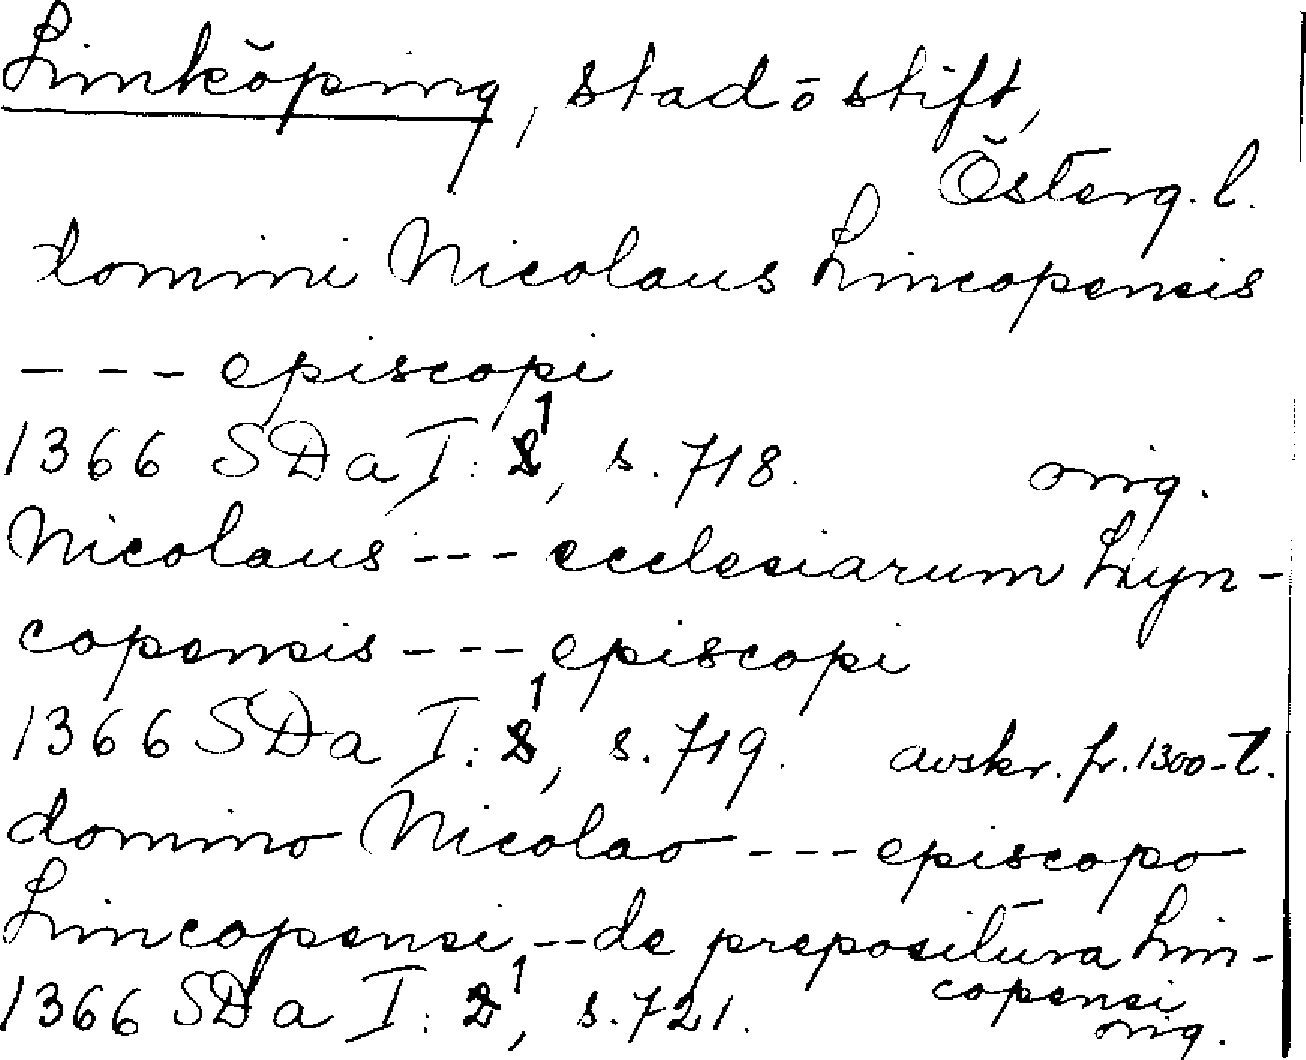 Linköping, stad o stift,
Österg. l.
domini Nicolaus Lincopensis
--- episcopi
1366 SDa I: 1, s. 718. orig.
Nicolaus --- ecclesiarum Lyn-
copensis --- episcopi
1366 SDa I: 1, s. 719. avskr. fr. 1300-t.
domino Nicolao --- episcopo
Lincopensi, -- de prepositura Lin-
copensi
1366 SDa I: 1, s. 721. orig.